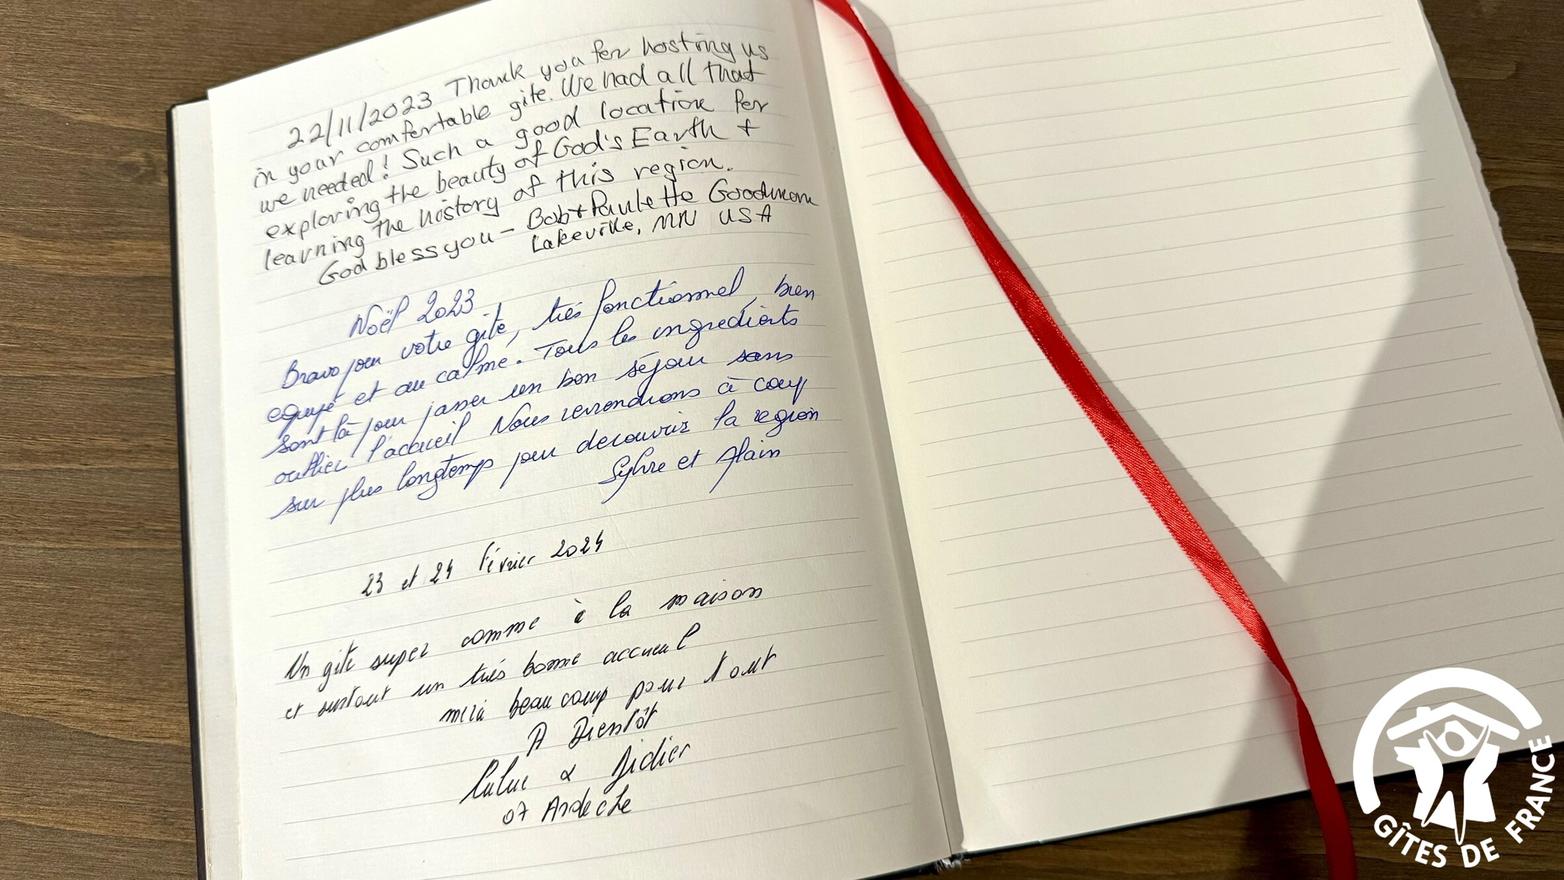 22/11/2023 Thank you for hosting us
in your comfortable gite. We had all that
we needed! Such a good location for
exploring the beauty of God's Earth +
learning the history of this region.
God bless you - Bob + Paulette Goodman
Lakeville, MN USA
Noël 2023
Bravo pour votre gîte, très fonctionnel, bien
equipé et au calme. Tous les ingredients
sont là pour passer un bon séjour sans
oublier l'accueil Nous reviendrons à coup
sur plus longtemps pour decouvrir la region
Sylvie et Alain
23 et 24 Février 2024
Un gite super comme à la maison
et surtout un très bonne accueil
merci beaucoup pour tout
A Bientôt
Lulu & Didier
07 Ardeche
GÎTES DE FRANCE